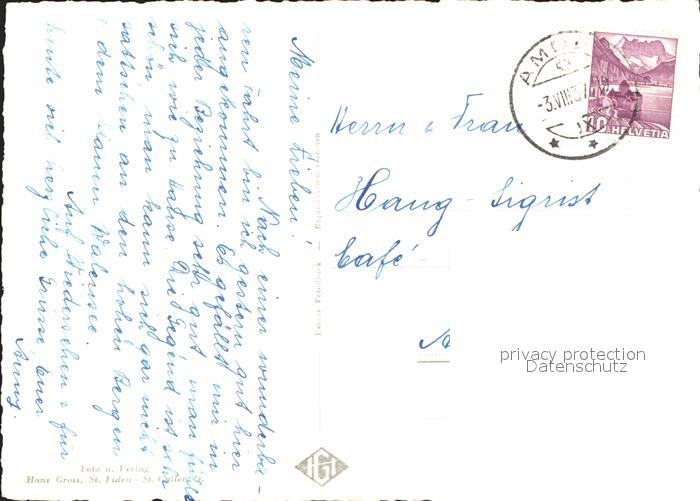 Meine Lieben!
Nach einer wunderba-
ren Fahrt bin ich gestern gut hier
angekommen. Es gefällt mir in
jeder Beziehung sehr gut, man fühlt
sich wie zu Hause. Die Gegend ist sehr
schön man kann sich gar nicht
sattsehen an den hohen Bergen
u dem klaren Walensee.
Auf Wiedersehen u für
heute viel herzliche Grüsse Euer
Anny.
Foto u. Verlag
Hans Gross, St. Fiden - St. Gallen
Echter Fotodruck — Reproduktion verboten
HG
Herrn u Frau
Haug-Sigrist
Café
AMDEN
-3.VIII.37
10 HELVETIA
privacy protection
Datenschutz